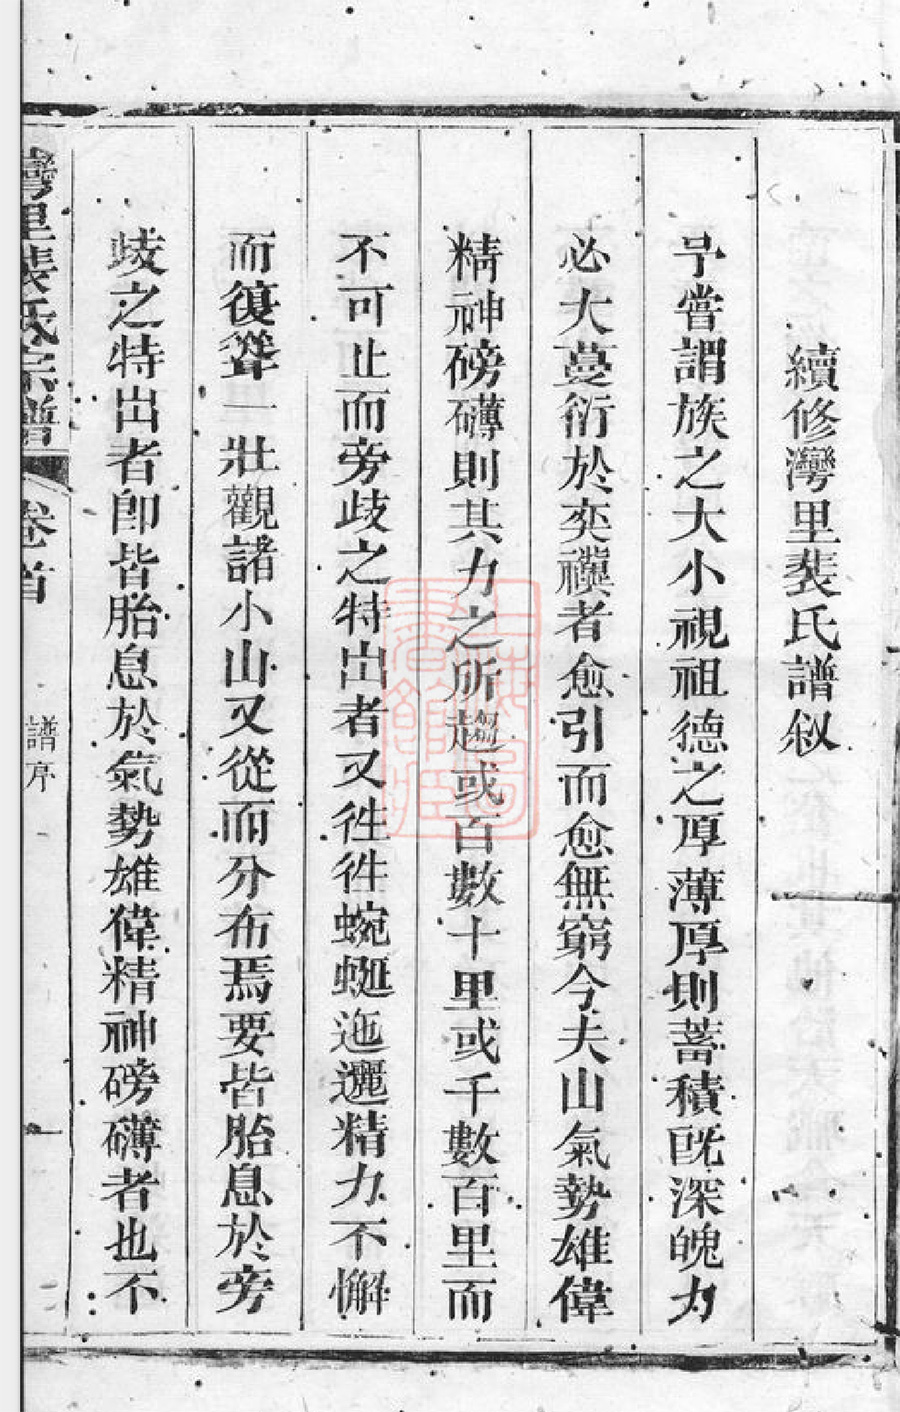 續修灣里裴氏譜叙
予嘗謂族之大小視祖德之厚薄厚則蓄積旣深魄力
必大蔓衍於奕禩者愈引而愈無窮今夫山氣勢雄偉
精神磅礴則其力之所趨或百數十里或千數百里而
不可止而旁歧之特出者又徃徃蜿蜒迤邐精力不懈
而復聳一壯觀諸小山又從而分布焉要皆胎息於旁
歧之特出者卽皆胎息於氣勢雄偉精神磅礴者也不
灣里裴氏宗譜 卷首 譜序 一